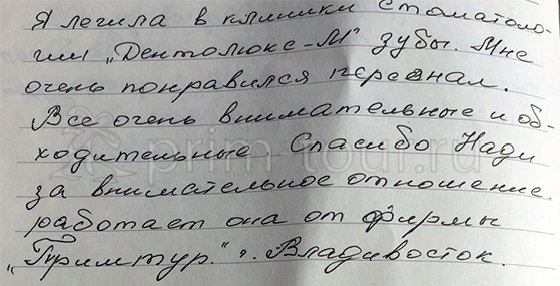 Я лечила в клиники стоматоло-
гии „Дентолюкс-М" зубы. Мне
очень понравился персонал.
Все очень внимательные и об-
ходительные Спасибо Нади
за внимательное отношение.
работает она от фирмы
„Примтур." г. Владивосток.
prim-tour.ru